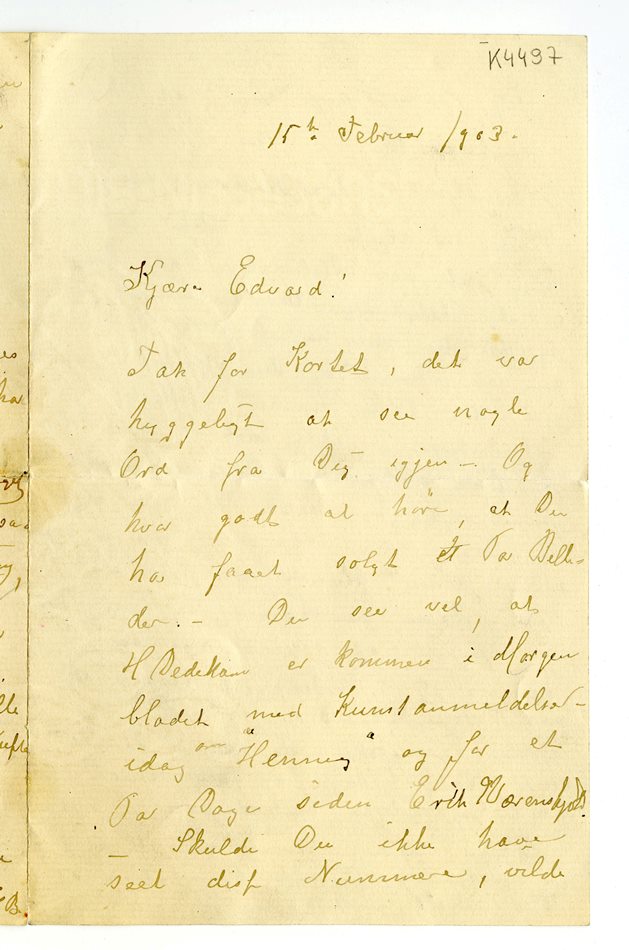 K4497
15de Februar 1903.
Kjære Edvard!
Tak for Kortet, det var
hyggeligt at see nogle
Ord fra Dig igjen – Og
hvor godt at höre, at Du
har faaet solgt et Par Bille-
der. – Du see vel, at
H Dedekam er kommen i Morgen
bladet med Kunstanmeldelser –
idag om "Henning" og for et
Par Dage siden Erik Werenskjold.
– Skulde Du ikke have
seet disse Nummere, vilde